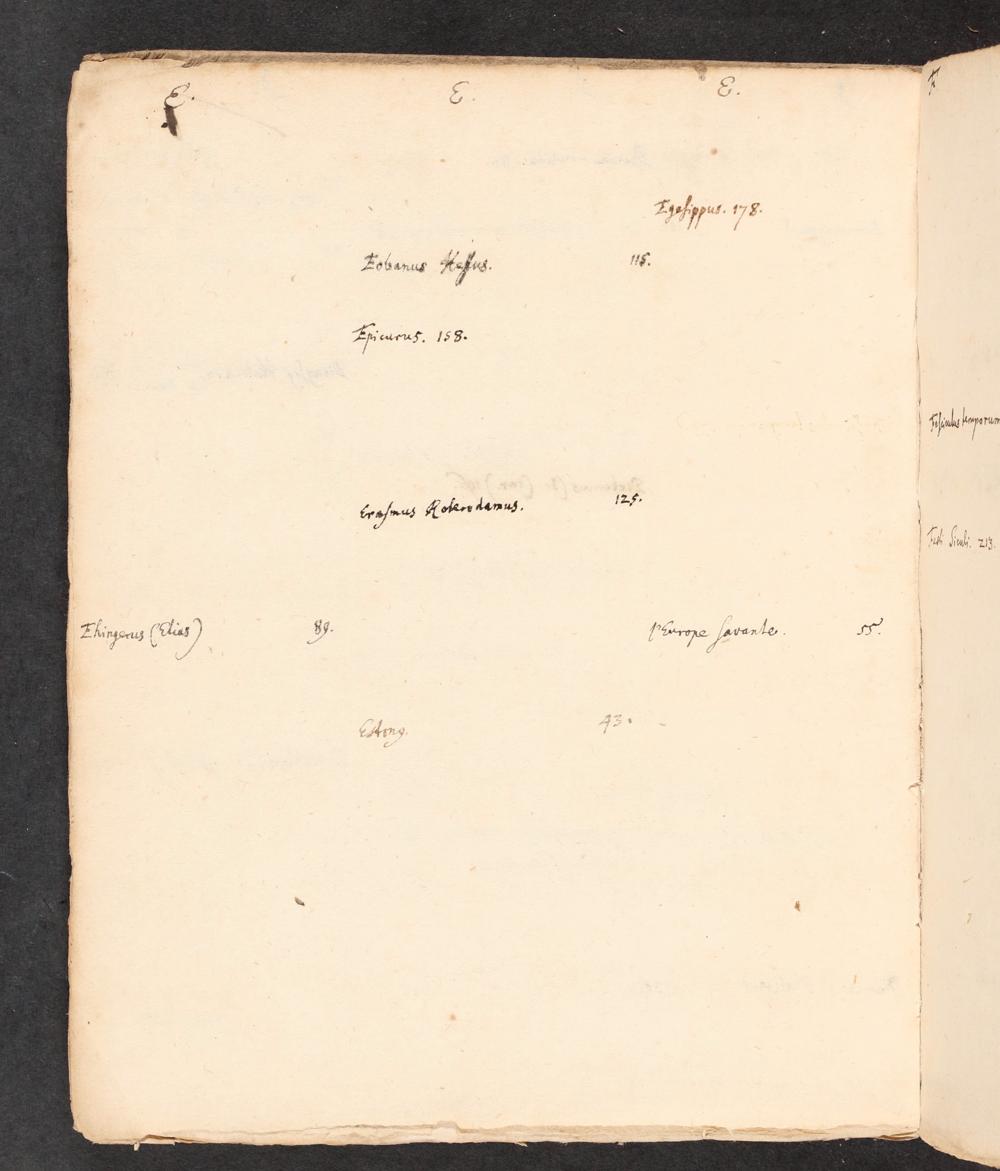 E. E. E.
Egesippus. 178.
Eobanus Hessus. 115.
Epicurus. 158.
Erasmus Roterodamus. 125.
Ehingerus (Elias) 89.
l'Europe savante. 55.
43.
F
temporum
Siculi. 213.